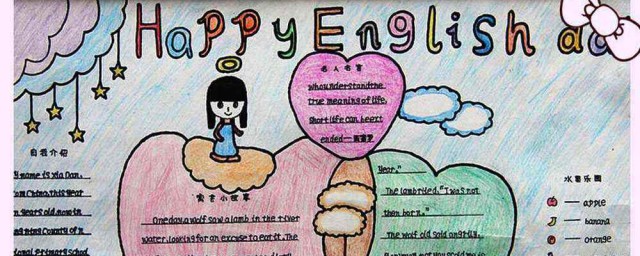 HaPPy EngliSh
名人名言
who understand the
true meaning of life,
short life can beext
ended—西塞罗
自我介绍
y name is Xia Dan,
om China, this year
n years old, now in
County of
primary school
寓言小故事
One day a wolf saw a lamb in the river
water, looking for an excuse to eat it. The
year."
The lamb cried, "I was not
then born."
The wolf said angrily,
水果乐园
— apple
— banana
— orange